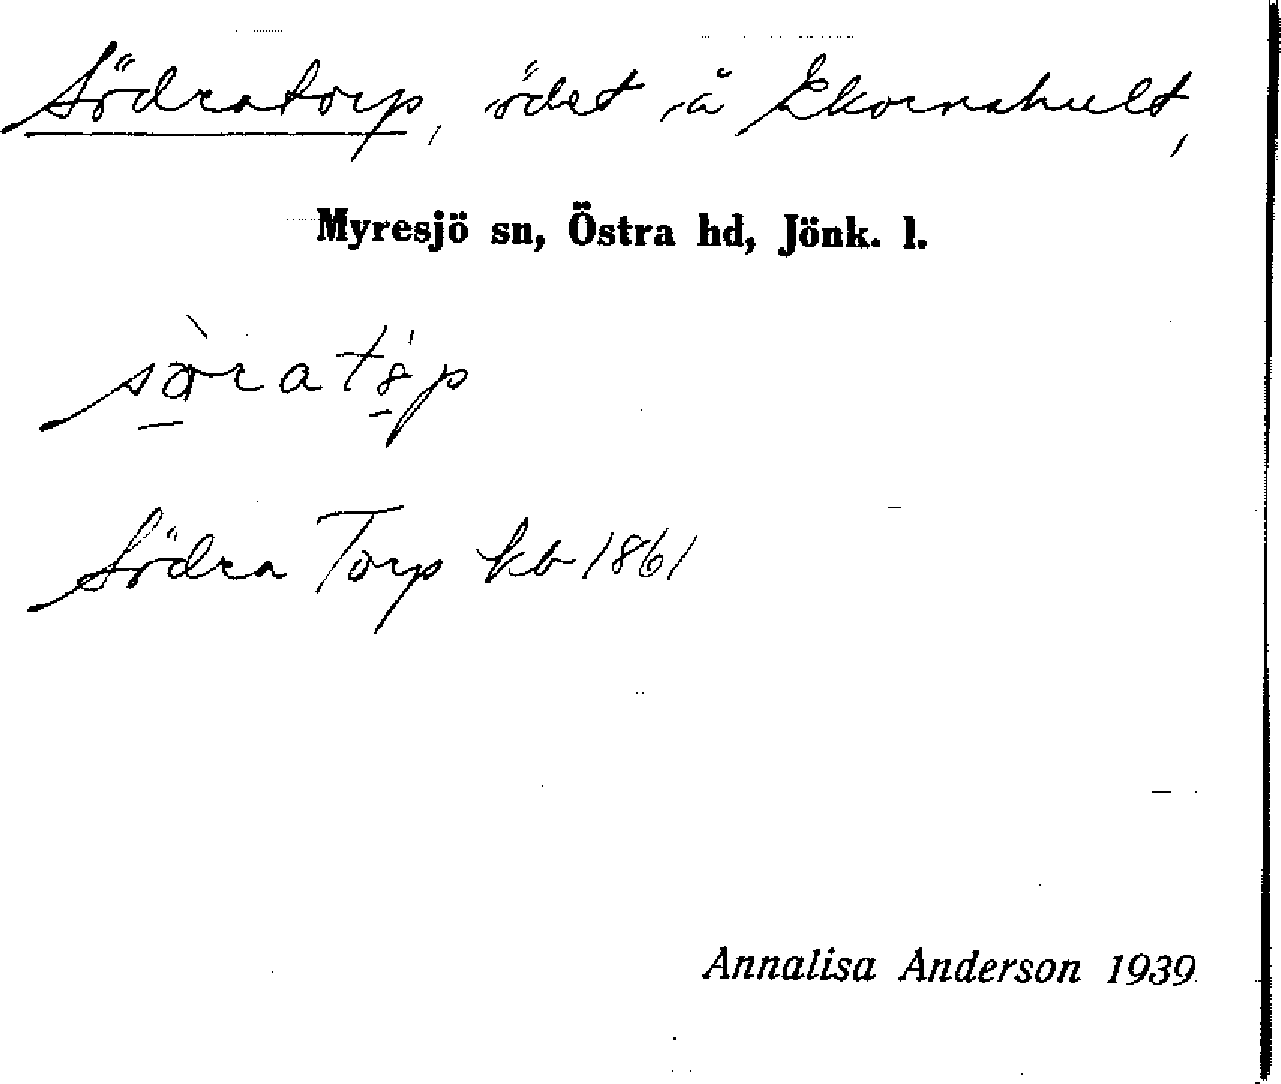 Södratorp, ödet å Ekornahult,
Myresjö sn, Östra hd, Jönk. l.
Södra Torp kb 1861
Annalisa Anderson 1939